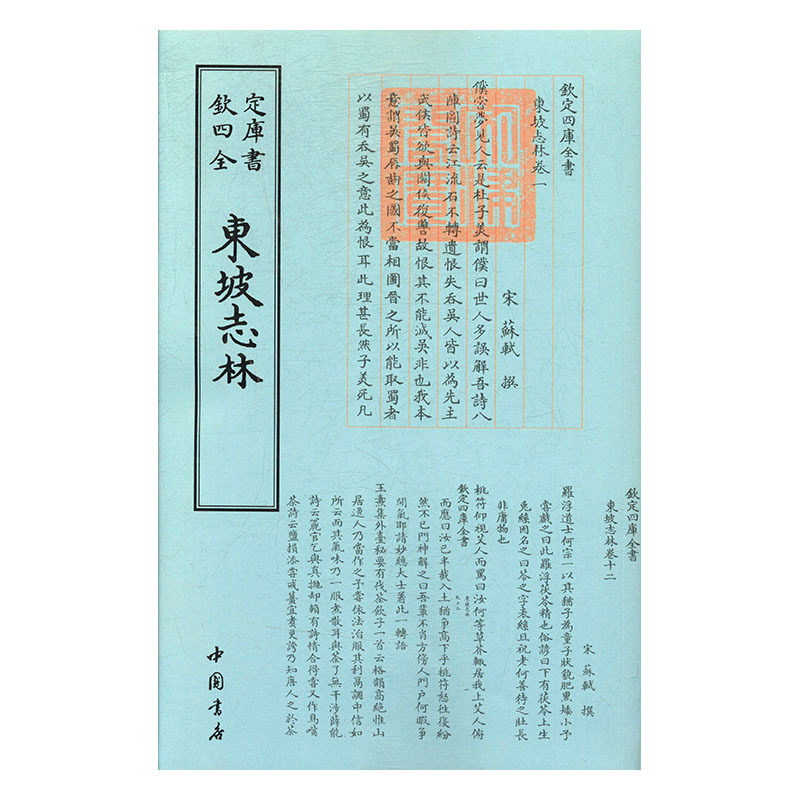 欽定四庫全書
東坡志林
中國書店
欽定四庫全書
東坡志林卷一
宋 蘇軾 撰
僕嘗夢見人云是杜子美謂僕曰世人多誤解吾詩八
陣圖詩云江流石不轉遺恨失吞吳人皆以為先主
武侯皆欲與關侯復讐故恨其不能滅吳非也我本
意謂吳蜀唇齒之國不當相圖晉之所以能取蜀者
以蜀有吞吳之意此為恨耳此理甚長然子美死凡
欽定四庫全書
東坡志林卷十二
宋 蘇軾 撰
羅浮道士何宗一以其猶子為童子狀貌肥黑矮小予
嘗戲之曰此羅浮茯苓精也俗諺曰下有茯苓上生
兎絲因名之曰苓之字表絲且祝老何善待之壯長
非庸物也
桃符仰視艾人而罵曰汝何等草芥輒居我上艾人俯
欽定四庫全書
而應曰汝已半截入土猶爭高下乎桃符怒往復紛
然不已門神解之曰吾輩不肖方傍人門戶何暇爭
閒氣耶請妙總大士著此一轉語
王燾集外臺秘要有代茶飲子一首云格韻高絶惟山
居逸人乃當作之予嘗依法治服其利鬲調中信如
所云而其氣味乃一服煮散耳與茶了無干涉薛能
詩云麄官乞與真抛却賴有詩情合得嘗又作鳥嘴
茶詩云鹽損添嘗戒薑宜著更誇乃知唐人之於茶